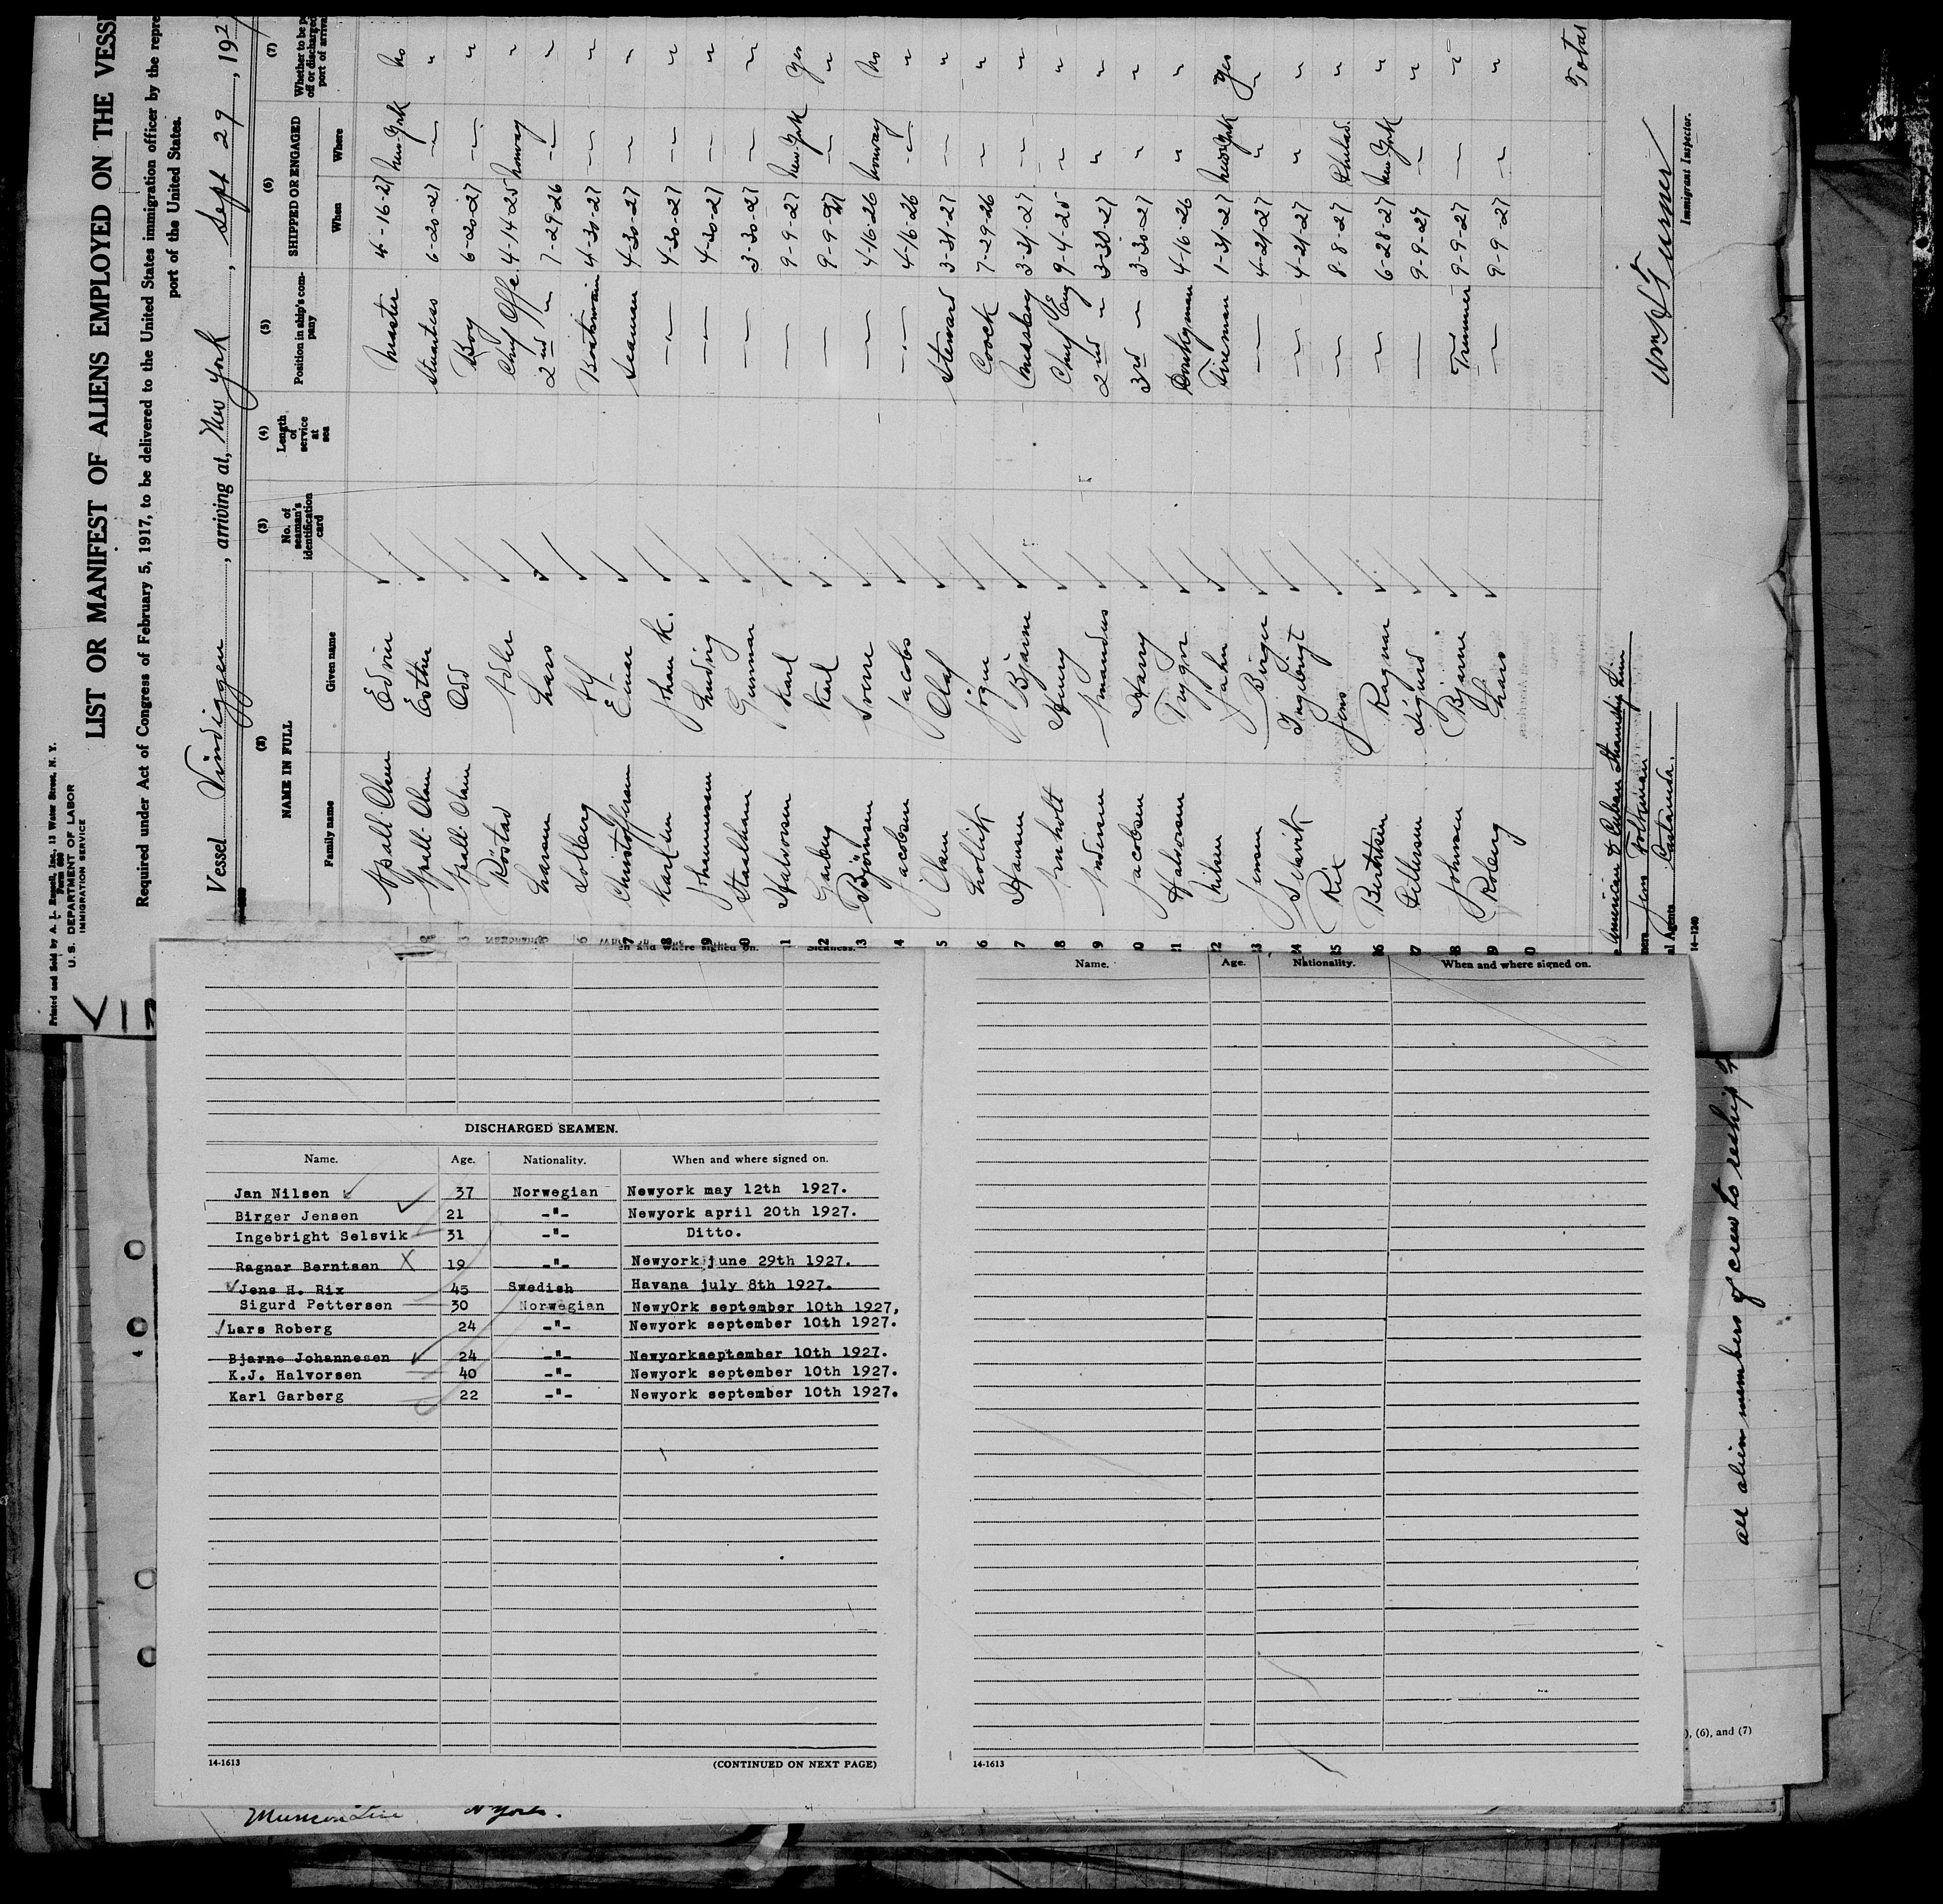 Printed and Sold by A. L. Russell, Inc., 13 Water Street, N. Y.
Form 680
U. S. DEPARTMENT OF LABOR
IMMIGRATION SERVICE
LIST OR MANIFEST OF ALIENS EMPLOYED ON THE VESS
Required under Act of Congress of February 5, 1917, to be delivered to the United States immigration officer by the repre
port of the United States.
Vessel Vindeggen, arriving at, New York, Sept 29, 192
(2) (3) (4) (5) (6) (7)
NAME IN FULL No. of seaman's identification card Length of service at sea Position in ship's company SHIPPED OR ENGAGED Whether to be p off or discharged port of arriva
Family name Given name When Where
Edvin Master 4-16-27 New York No
Esther Stuartess 6-20-27 " "
Odd Boy 6-20-27 " "
Röstad Adler Chief Offc. 4-14-25 Norway "
Larsen Lars 2nd " 7-29-26 " "
Solberg Alf Boatswain 4-30-27 " "
7 Christoffersen Einar Seaman 4-30-27 " "
8 Karlsen Johan K. " 4-30-27 " "
9 Johannessen Ludvig " 4-30-27 " "
0 Staalham Gunnar " 3-30-27 " "
1 Halvorsen Karl " 9-9-27 New York Yes
12 Garberg Karl " 9-9-27 " "
13 Björnsen Sverre " 4-16-26 Norway No
14 Jacobsen Jacobs " 4-16-26 " "
5 Olsen Olaf Steward 3-31-27 " "
6 Lollik Jörgen Coock 7-29-26 " "
7 Hansen Bjarne Messboy 3-31-27 " "
8 Henry Chief Eng 9-4-25 " "
9 Andersen Amandus 2nd " 3-30-27 " "
0 Jacobsen Harry 3rd " 3-30-27 " "
21 Halvorsen Trygve Donkeyman 4-16-26 " "
22 Nilsen John Fireman 1-31-27 New York Yes
23 Jensen Birger " 4-21-27 " "
24 Selsvik Ingebrigt " 4-21-27 " "
25 Rix Jens " 8-8-27 Philad. "
26 Berntsen Ragnar " 6-28-27 New York "
27 Pettersen Sigurd " 9-9-27 " "
28 Johnsen Bjarne Trimmer 9-9-27 " "
29 Roberg Lars " 9-9-27 " "
Total
American & Cuban Steamship Line
al Agents
14-1240
Wm H Turner
Immigrant Inspector.
en and where signed on. Sickness.
DISCHARGED SEAMEN.
Name. Age. Nationality. When and where signed on.
Jan Nilsen 37 Norwegian Newyork may 12th 1927.
Birger Jensen 21 -"- Newyork april 20th 1927.
Ingebright Selsvik 31 -"- Ditto.
Ragnar Berntsen 19 -"- Newyork june 29th 1927.
Jens H. Rix 45 Swedish Havana july 8th 1927.
Sigurd Pettersen 30 Norwegian NewyOrk september 10th 1927,
Lars Roberg 24 -"- Newyork september 10th 1927.
Bjarne Johannesen 24 -"- Newyorkseptember 10th 1927.
K.J. Halvorsen 40 -"- Newyork september 10th 1927.
Karl Garberg 22 -"- Newyork september 10th 1927.
14-1613 (CONTINUED ON NEXT PAGE)
Name. Age. Nationality. When and where signed on.
14-1613
all alien members of crew to reship
), (6), and (7)
Munson Line N York.